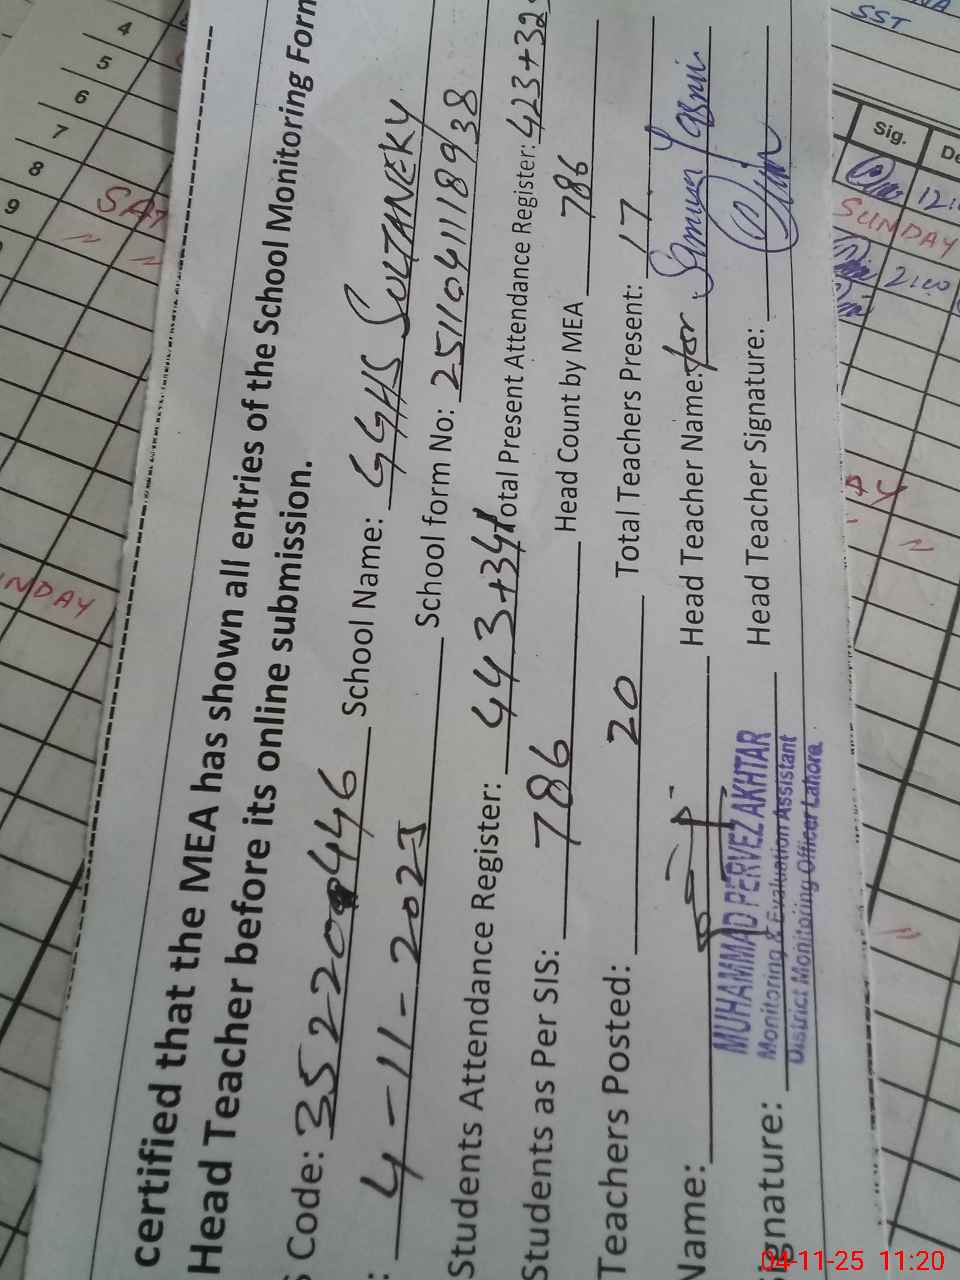 certified that the MEA has shown all entries of the School Monitoring Form
Head Teacher before its online submission.
Code: 35220446 School Name: GGHS SULTANEKY
: 4-11-2025 School form No: 25110411118938
Students Attendance Register: 443+341 Total Present Attendance Register: 423+32
Students as Per SIS: 786 Head Count by MEA 786
Teachers Posted: 20 Total Teachers Present: 17
Name: Head Teacher Name: for
MUHAMMAD PERVEZ AKHTAR
Monitoring & Evaluation Assistant
District Monitoring Officer Lahore
Signature: Head Teacher Signature:
4
5
6
7
8
9
SAT
SUNDAY
SST
Sig.
SUNDAY
2:00
04-11-25 11:20